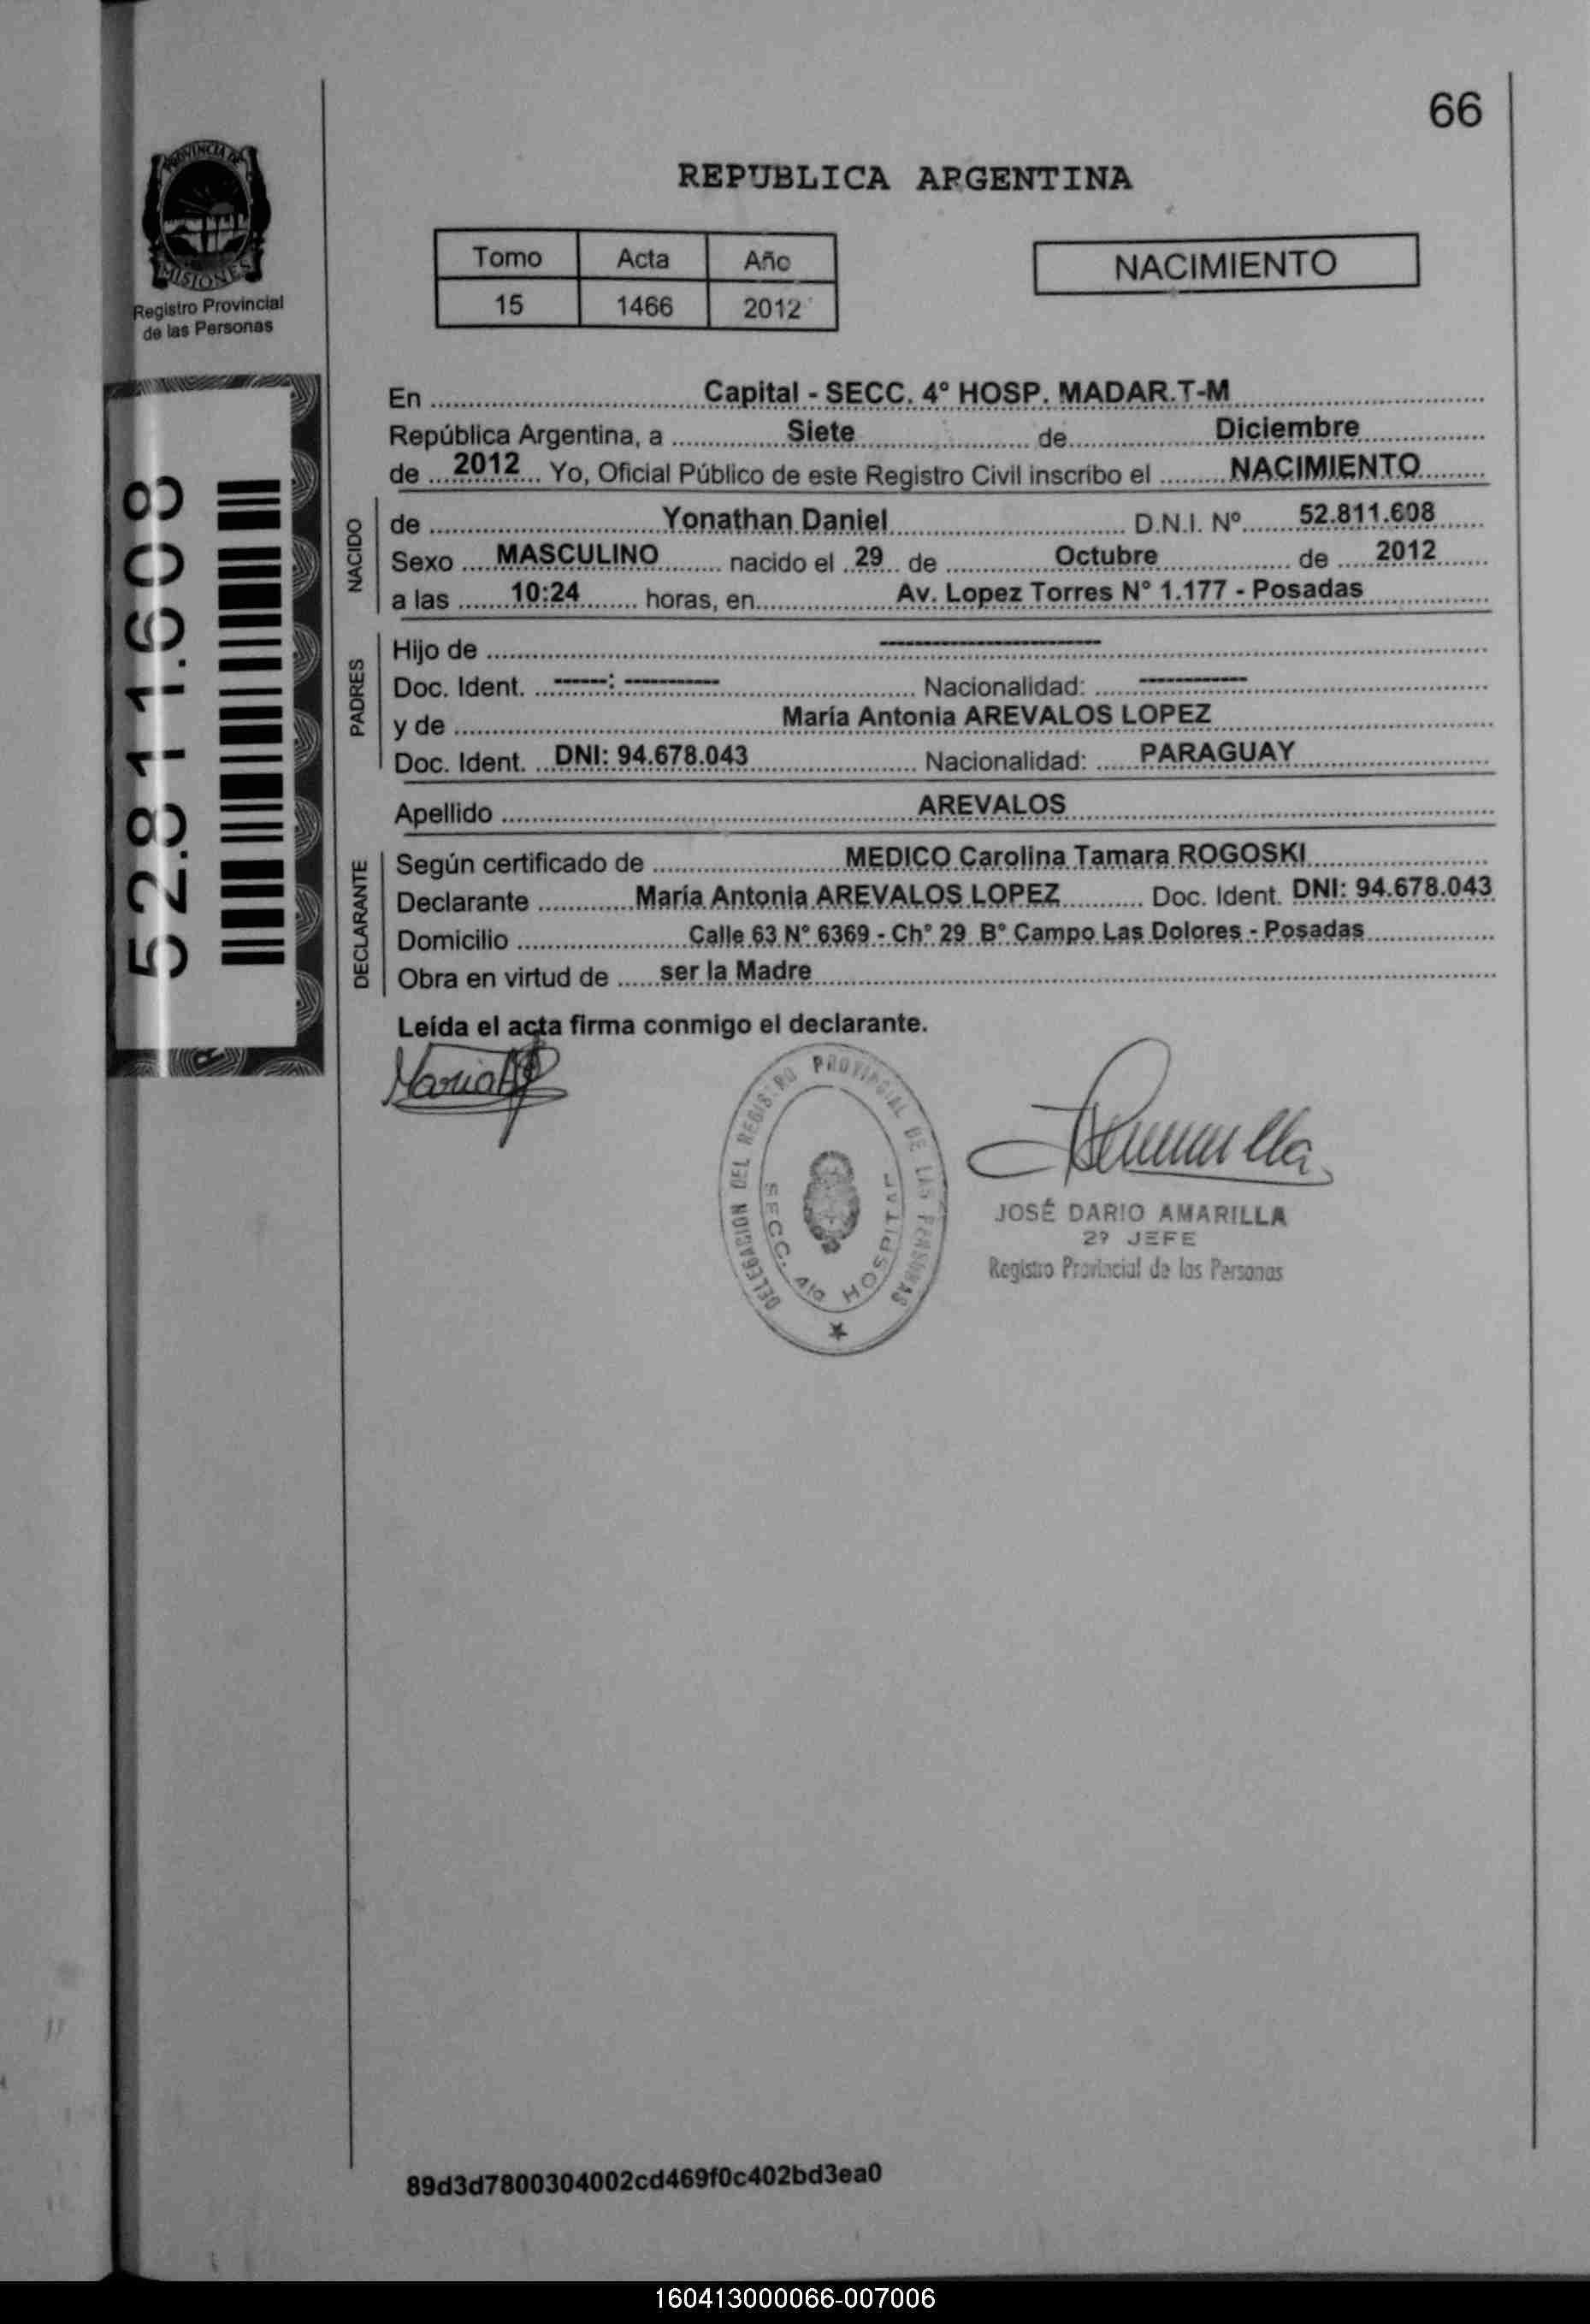 66
PROVINCIA DE
MISIONES
Registro Provincial
de las Personas
REPUBLICA ARGENTINA
Tomo Acta Año
15 1466 2012
NACIMIENTO
52.811.608
En Capital - SECC. 4º HOSP. MADAR.T-M
República Argentina, a Siete de Diciembre
de 2012 Yo, Oficial Público de este Registro Civil inscribo el NACIMIENTO
NACIDO
de Yonathan Daniel D.N.I. Nº 52.811.608
Sexo MASCULINO nacido el 29 de Octubre de 2012
a las 10:24 horas, en Av. Lopez Torres Nº 1.177 - Posadas
PADRES
Hijo de --------------------
Doc. Ident. -----: --------- Nacionalidad: ----------
y de María Antonia AREVALOS LOPEZ
Doc. Ident. DNI: 94.678.043 Nacionalidad: PARAGUAY
Apellido AREVALOS
DECLARANTE
Según certificado de MEDICO Carolina Tamara ROGOSKI
Declarante María Antonia AREVALOS LOPEZ Doc. Ident. DNI: 94.678.043
Domicilio Calle 63 Nº 6369 - Chº 29 Bº Campo Las Dolores - Posadas
Obra en virtud de ser la Madre
Leída el acta firma conmigo el declarante.
DELEGACION DEL REGISTRO PROVINCIAL DE LAS PERSONAS
SECC. 4ta HOSPITAL
JOSÉ DARIO AMARILLA
2º JEFE
Registro Provincial de las Personas
89d3d7800304002cd469f0c402bd3ea0
160413000066-007006